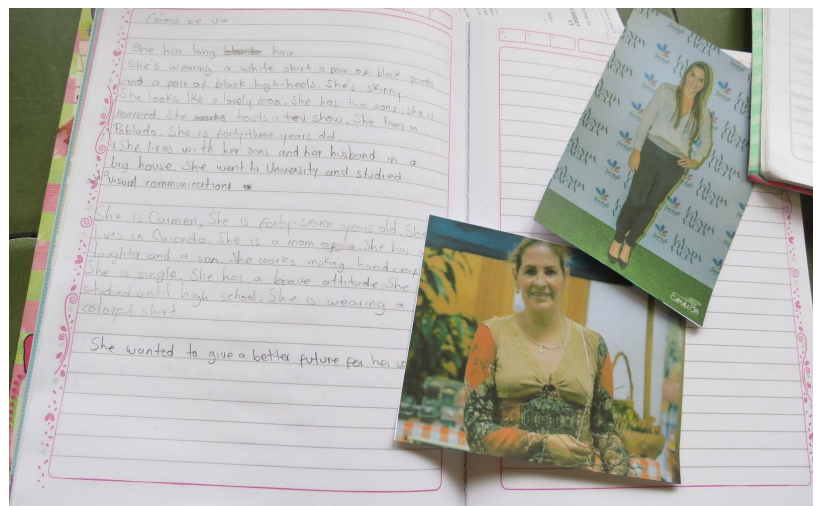 Cómo se ve
She has long hair
She's wearing a white shirt, a pair of black pants
and a pair of black high-heels. She's skinny.
She looks like a lovely mom. She has two sons. She is
married. She hosts a tv show. She lives in
Poblado. She is forty-three years old.
She lives with her sons and her husband in a
big house. She went to University and studied
visual communications
She is Carmen, She is forty-seven years old. She
lives in Caicedo. She is a mom She has a
daughter and a son. She works making
She is single. She has a brave attitude. She
studied until high school. She is wearing a
colorful shirt
She wanted to give a better future for her